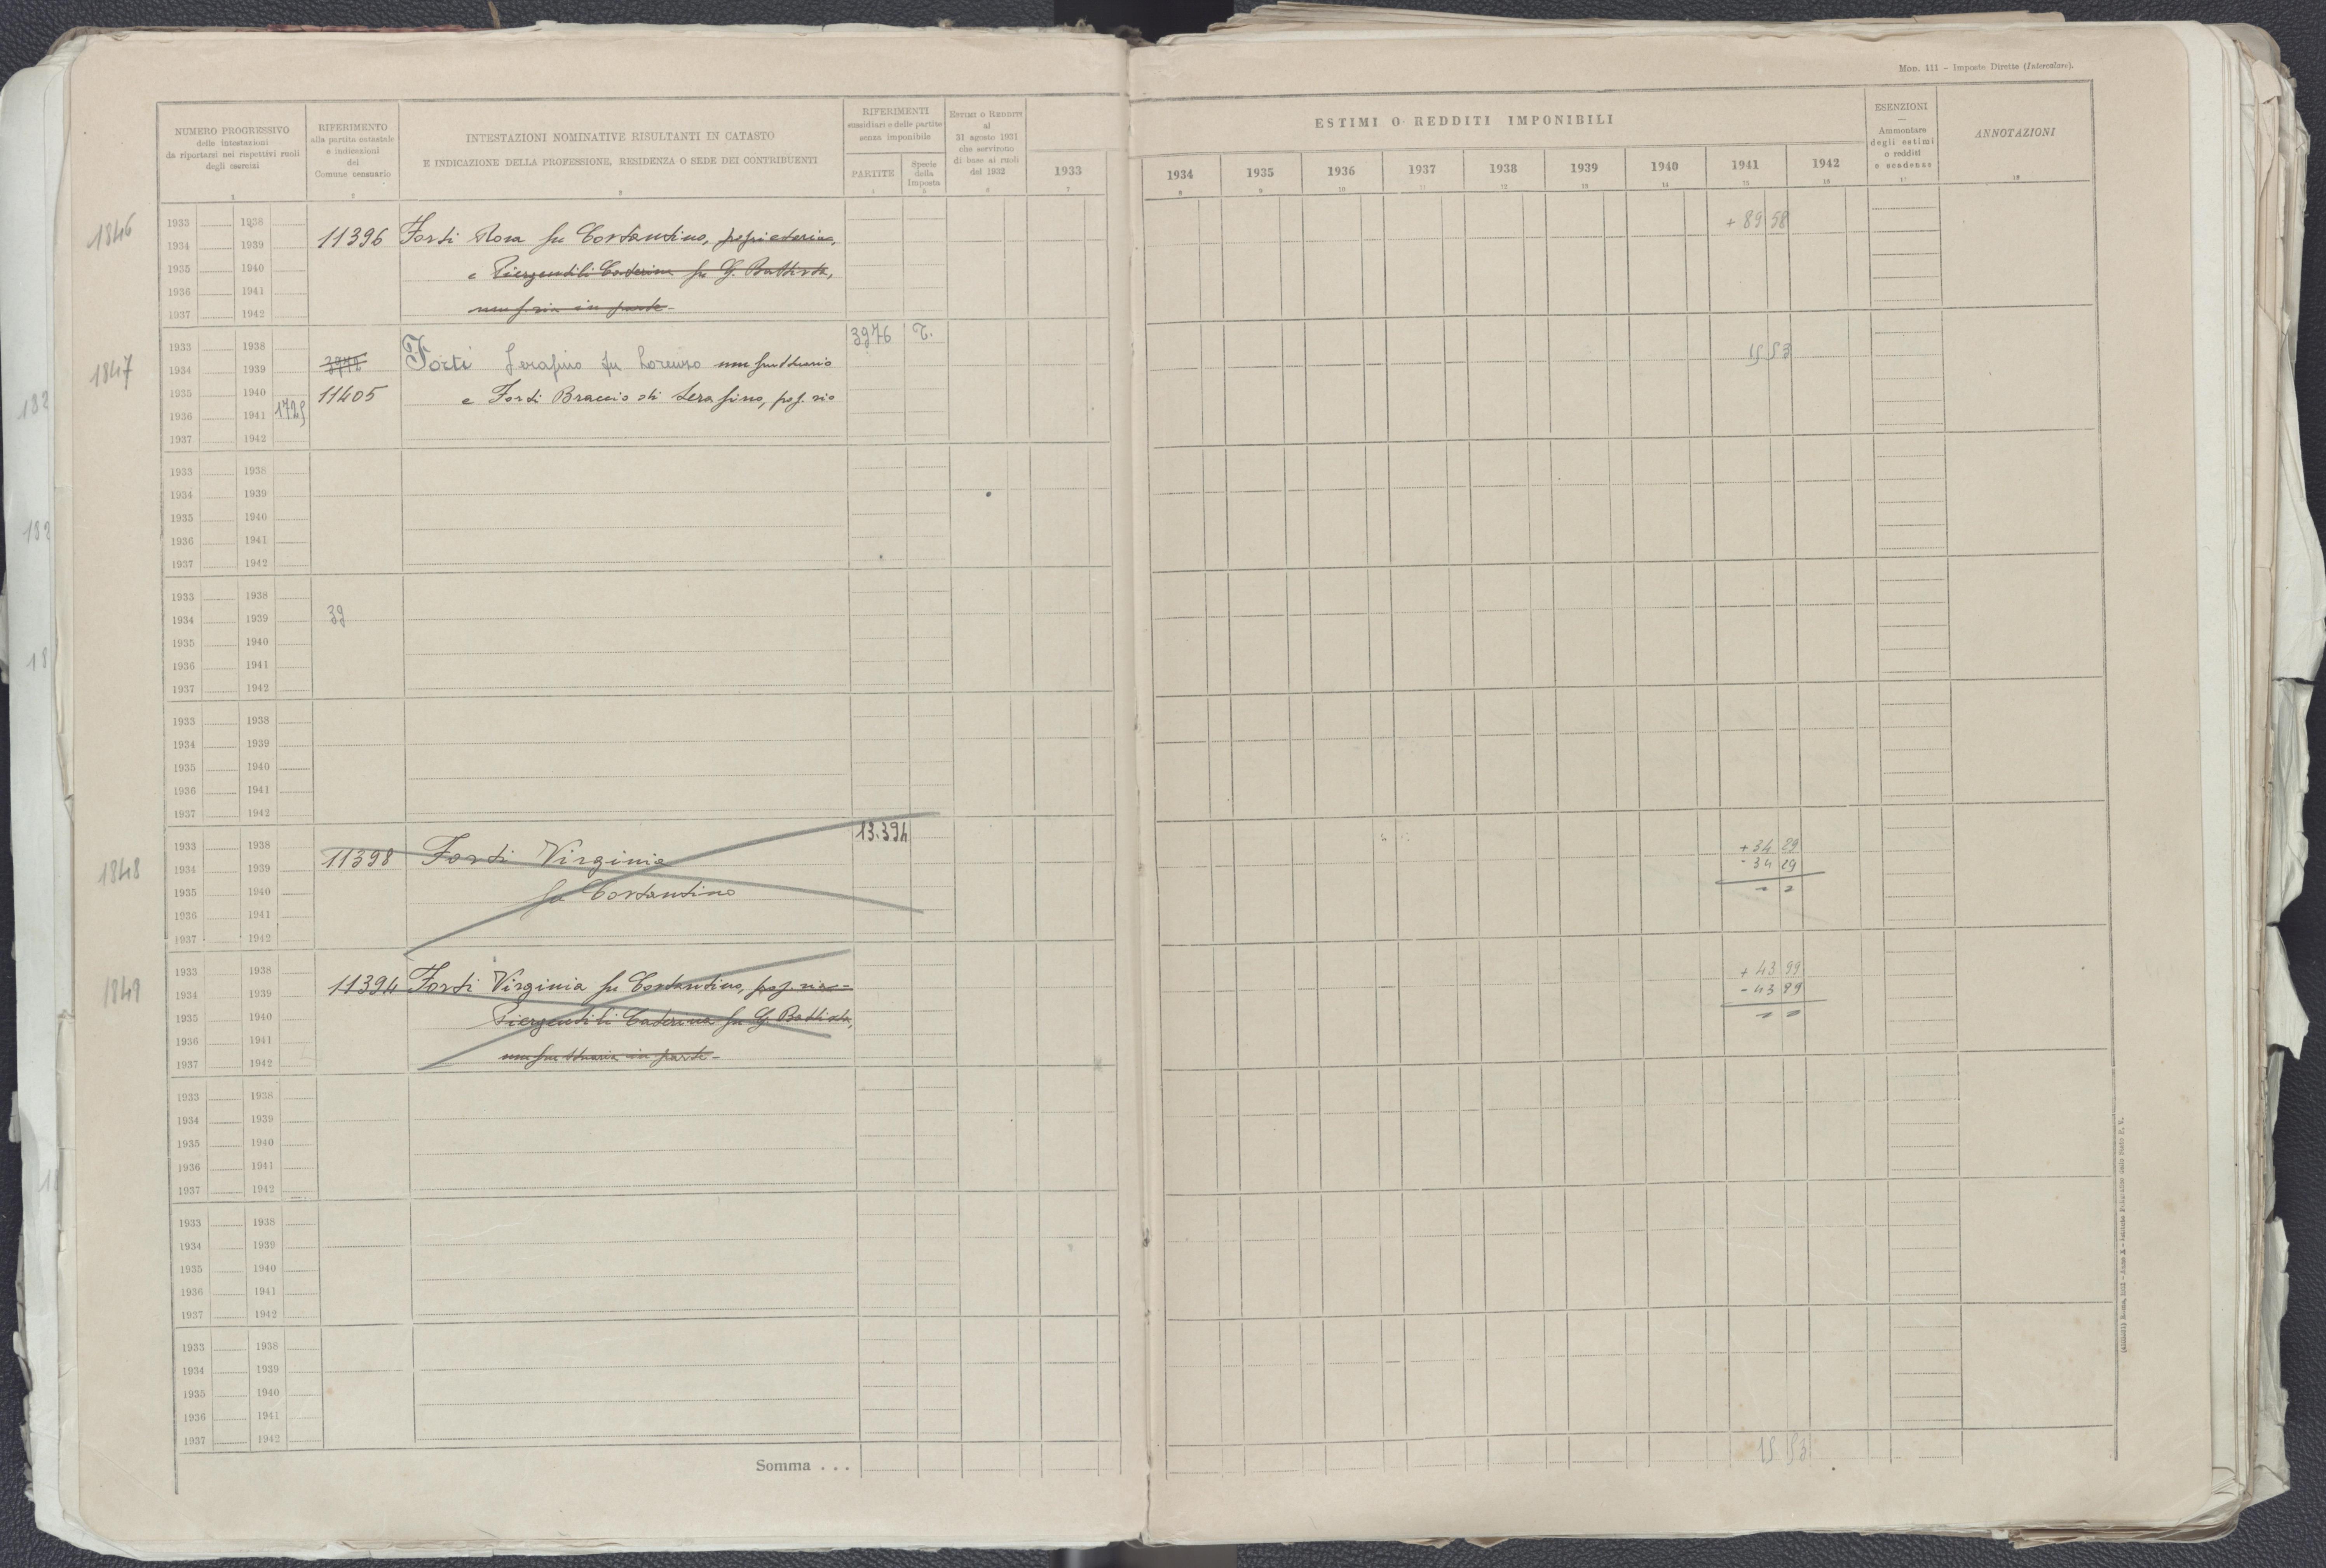 Mod. 111 – Imposte Dirette (Intercalare).
NUMERO PROGRESSIVO
delle intestazioni
da riportarsi nei rispettivi ruoli
degli esercizi
1
RIFERIMENTO
alla partita catastale
e indicazioni
del
Comune censuario
2
INTESTAZIONI NOMINATIVE RISULTANTI IN CATASTO
E INDICAZIONE DELLA PROFESSIONE, RESIDENZA O SEDE DEI CONTRIBUENTI
3
RIFERIMENTI
sussidiari e delle partite
senza imponibile
PARTITE
4
Specie
della
Imposta
5
Estimi o Redditi
al
31 agosto 1931
che servirono
di base ai ruoli
del 1932
6
1933
7
ESTIMI O REDDITI IMPONIBILI
1934 1935 1936 1937 1938 1939 1940 1941 1942
8 9 10 11 12 13 14 15 16
ESENZIONI
—
Ammontare
degli estimi
o redditi
e scadenze
17
ANNOTAZIONI
18
1846
1933 1938
1934 1939 11396 Forti Rosa fu Costantino, proprietaria, + 89 58
1935 1940 e Piergentili Caterina fu G. Battista,
1936 1941
1937 1942 in parte -
1847
1933 1938 3976 T.
1934 1939 Forti Serafino fu Lorenzo usufruttuario 15 53
1935 1940 11405 e Forti Braccio di Serafino, prop. rio
1936 1941 1725
1937 1942
132
1933 1938
1934 1939
1935 1940
1936 1941
1937 1942
132
1933 1938
1934 1939 39
1935 1940
1936 1941
1937 1942
18
1933 1938
1934 1939
1935 1940
1936 1941
1937 1942
1848
1933 1938 13.394 + 34 29
1934 1939 11398 Forti Virginia - 34 29
1935 1940 fu Costantino
1936 1941
1937 1942
1849
1933 1938 + 43 99
1934 1939 11394 Forti Virginia fu Costantino, - 43 99
1935 1940 Piergentili Caterina fu G. Battista,
1936 1941
1937 1942 usufruttuaria in parte -
1933 1938
1934 1939
1935 1940
1936 1941
1937 1942
1933 1938
1934 1939
1935 1940
1936 1941
1937 1942
1933 1938
1934 1939
1935 1940
1936 1941
1937 1942
Somma . . . 15 53